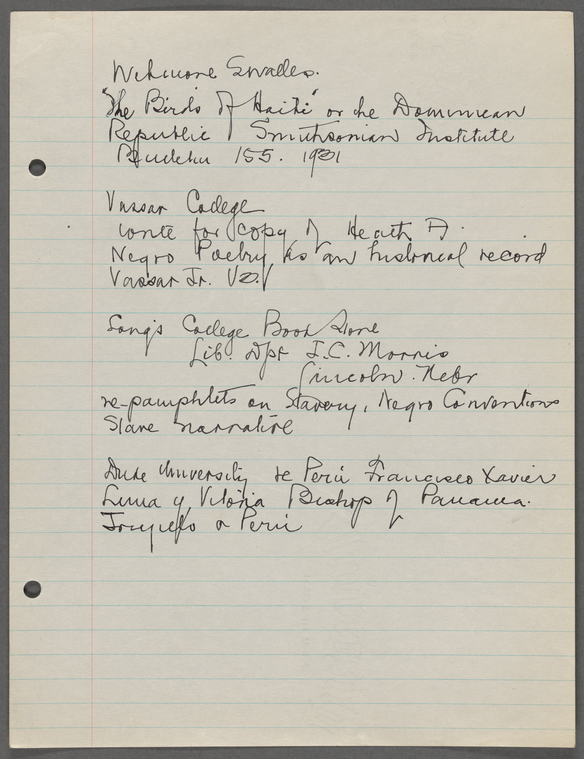 Wetmore Swales.
"The Birds of Haiti" or the Dominican
Republic Smithsonian Institute
Bulletin 155. 1931
Vassar College
write for copy of Heath
Negro Poetry as an historical record
Vassar Jr. Vol
Long's College Book Store
Lib. Dpt J.C. Morris
Lincoln. Nebr
re-pamphlets on Slavery, Negro Conventions
Slave narrative
Duke University re Peru Francisco Xavier
Luna y Vitoria Bishop of Panama.
Trujillo o Peru